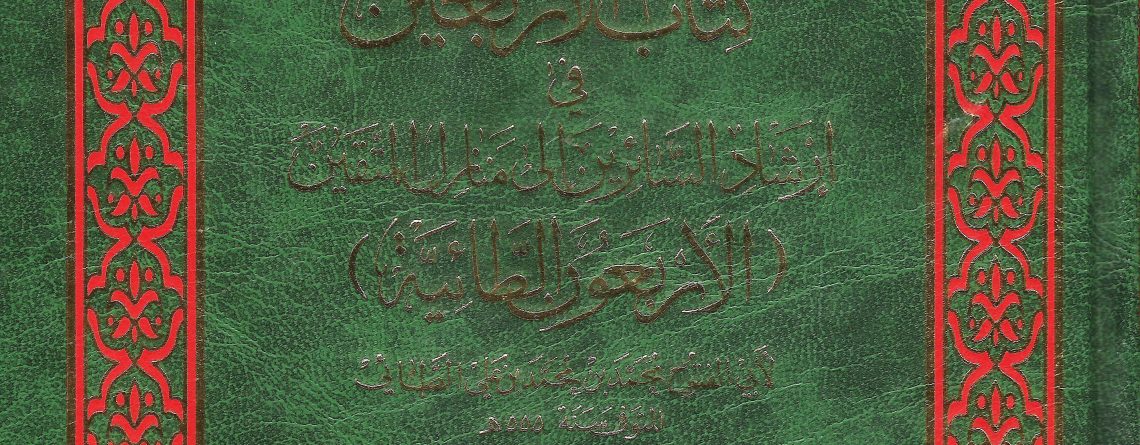 كتاب الأربعين
في
إرشاد السائرين إلى منازل المتقين
(الأربعون الطائية)
لأبي الفتوح محمد بن محمد بن علي الطائي
المتوفى سنة ٥٥٥ هـ